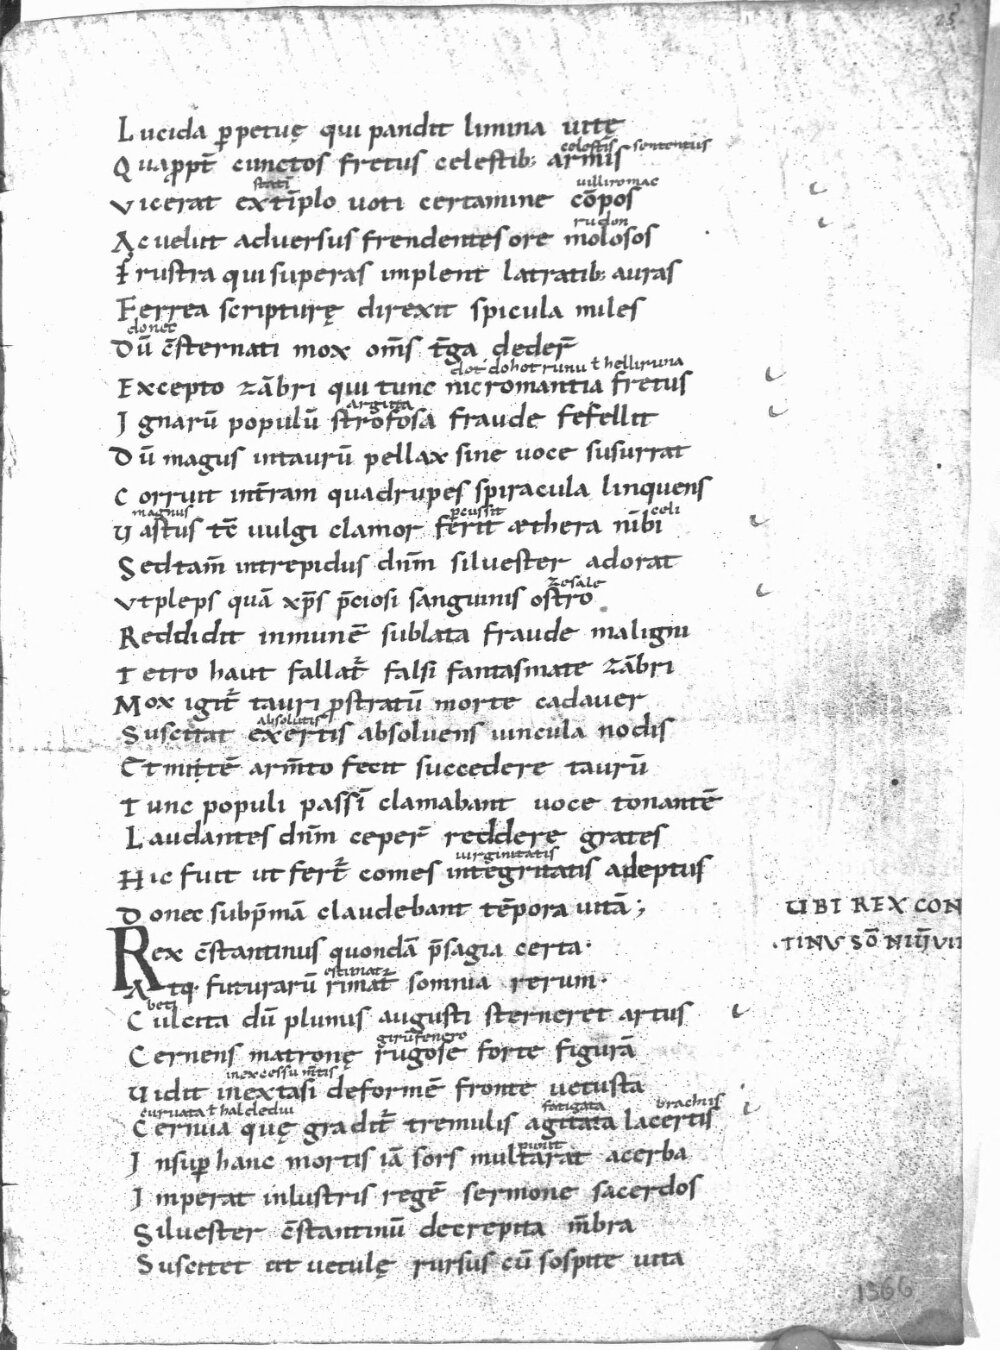 25
Lucida ꝑpetuę qui pandit limina uitę
celestis sententiis
Quaꝓpt̄ cunctos fretus celestib; armis
statī uilliromac
Vicerat extīplo uoti certamine cōpos
rudon
Ac uelut aduersus frendentes ore molosos
Frustra qui superas implent latratib; auras
Ferrea scripturę direxit spicula miles
donec
Dū c̄sternati mox om̄s t̄ga deder̄
dohotrunu ł helliruna
Excepto zābri qui tunc nicromantia fretus
arguta
Ignarū populū strofosa fraude fefellit
Dū magus intaurū pellax sine uoce susurrat
Corruit int̄ram quadrupes spiracula linquens
magnus ꝑcussit celi
Uastus tc̄ uulgi clamor ferit æthera nībi
Sedtam̄ intrepidus dn̄m siluester adorat
zesale
Vtpleps quā xp̄s p̄ciosi sanguinis ostro
Reddidit inmunē sublata fraude maligni
Tetro haut fallat᷑ falsi fantasmate zābri
Mox igit᷑ tauri ꝓstratū morte cadauer
absolutis
Suscitat exertis absoluens uincula nodis
Et mittē arm̄to fecit succedere taurū
Tunc populi passī clamabant uoce tonantē
Laudantes dn̄m ceper̄ reddere grates
uirginitatis
Hic fuit ut fert᷑ comes integritatis adeptus
Donec subp̄mā claudebant tēpora uitā;
UBI REX CON
TINVS SŌNIŪ VI
Rex c̄stantinus quondā p̄sagia certa·
estimat
Atq· futurarū rimat᷑ somnia rerum·
beti
Culcita dū plumis augusti sterneret artus
girūfenero
Cernens matronę rugose forte figurā
inexcessu m̄tis
Uidit inextasi deformē fronte uetusta
curuata ł haldediu fatigata brachiis
Cernua quę gradit᷑ tremulis agitata lacertis
puniit
Insuꝑ hanc mortis iā sors multarat acerba
Imperat inlustris regē sermone sacerdos
Siluester c̄stantinū decrepita m̄bra
Suscitet ut uetulę rursus cū sospite uita
1366